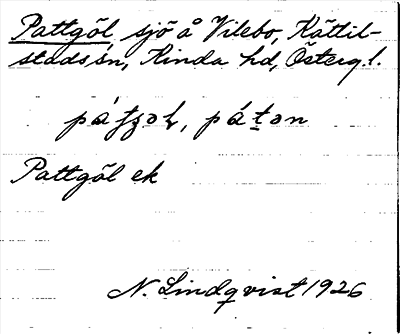 Pattgöl, sjö å Vilebo, Kättil-
stads sn, Kinda hd, Österg.l.
Pattgöl ek
N. Lindqvist 1926